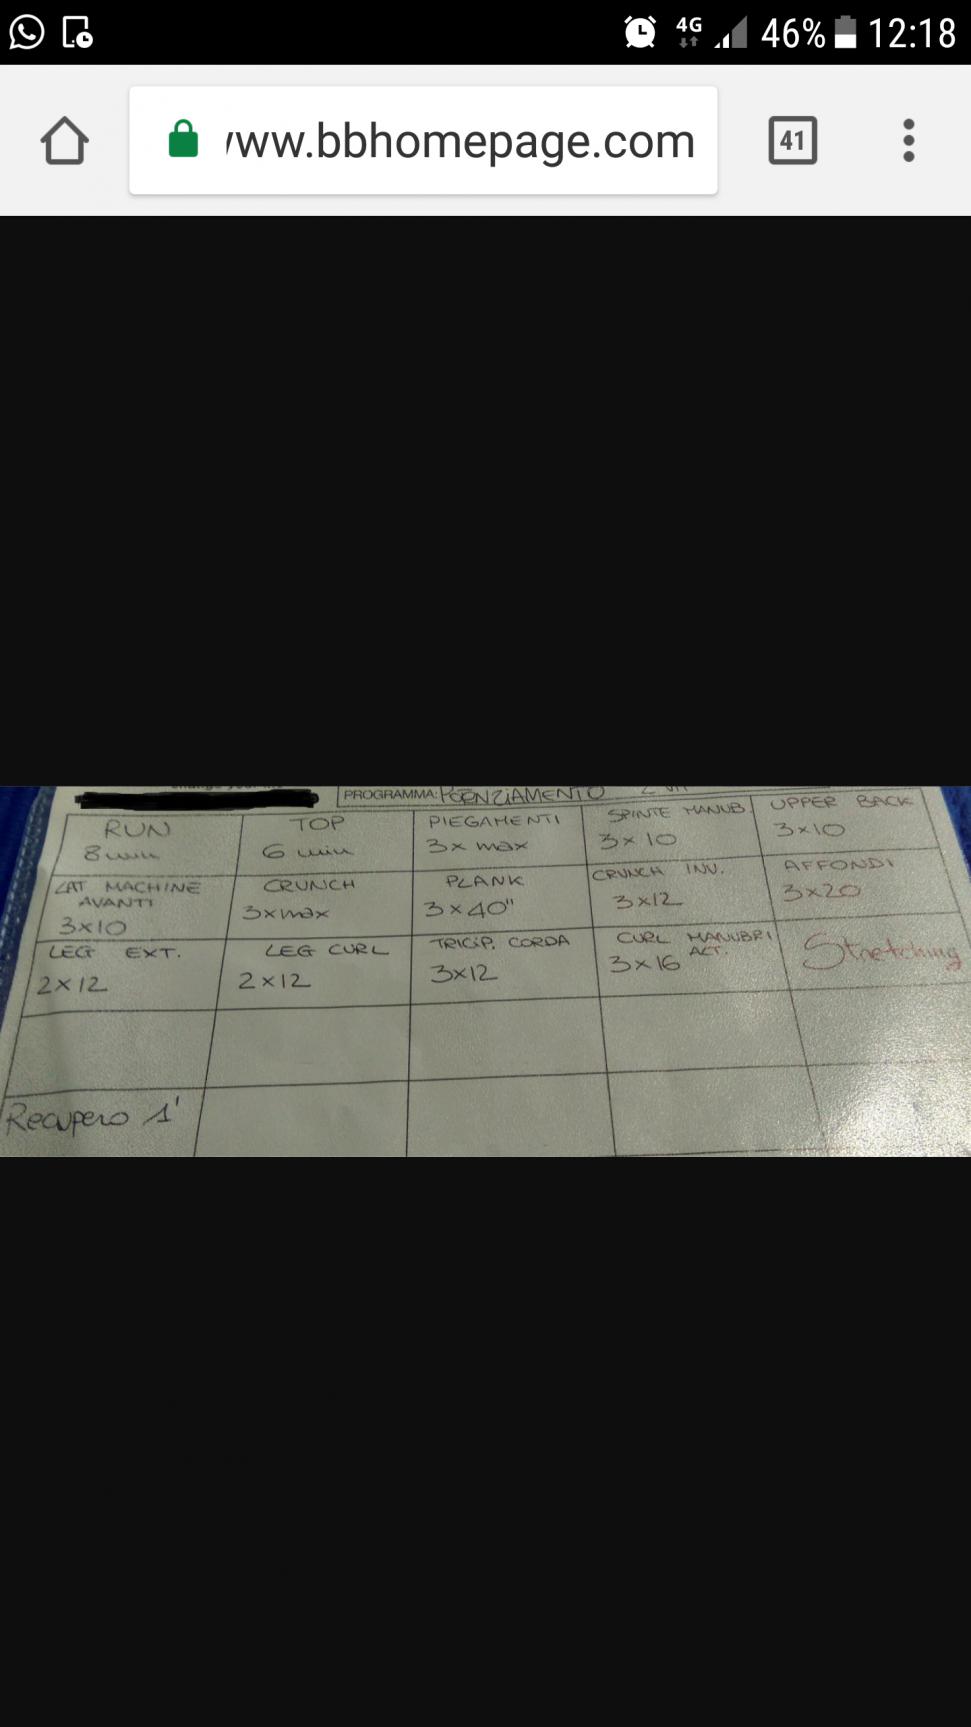 46% 12:18
4G
www.bbhomepage.com
41
PROGRAMMA: POTENZIAMENTO
RUN
8 min
TOP
6 min
PIEGAMENTI
3x max
SPINTE MANUB.
3x10
UPPER BACK
3x10
LAT MACHINE
AVANTI
3x10
CRUNCH
3xmax
PLANK
3x40"
CRUNCH INV.
3x12
AFFONDI
3x20
LEG EXT.
2x12
LEG CURL
2x12
TRICIP. CORDA
3x12
CURL MANUBRI
ALT.
3x16
Stretching
Recupero 1'